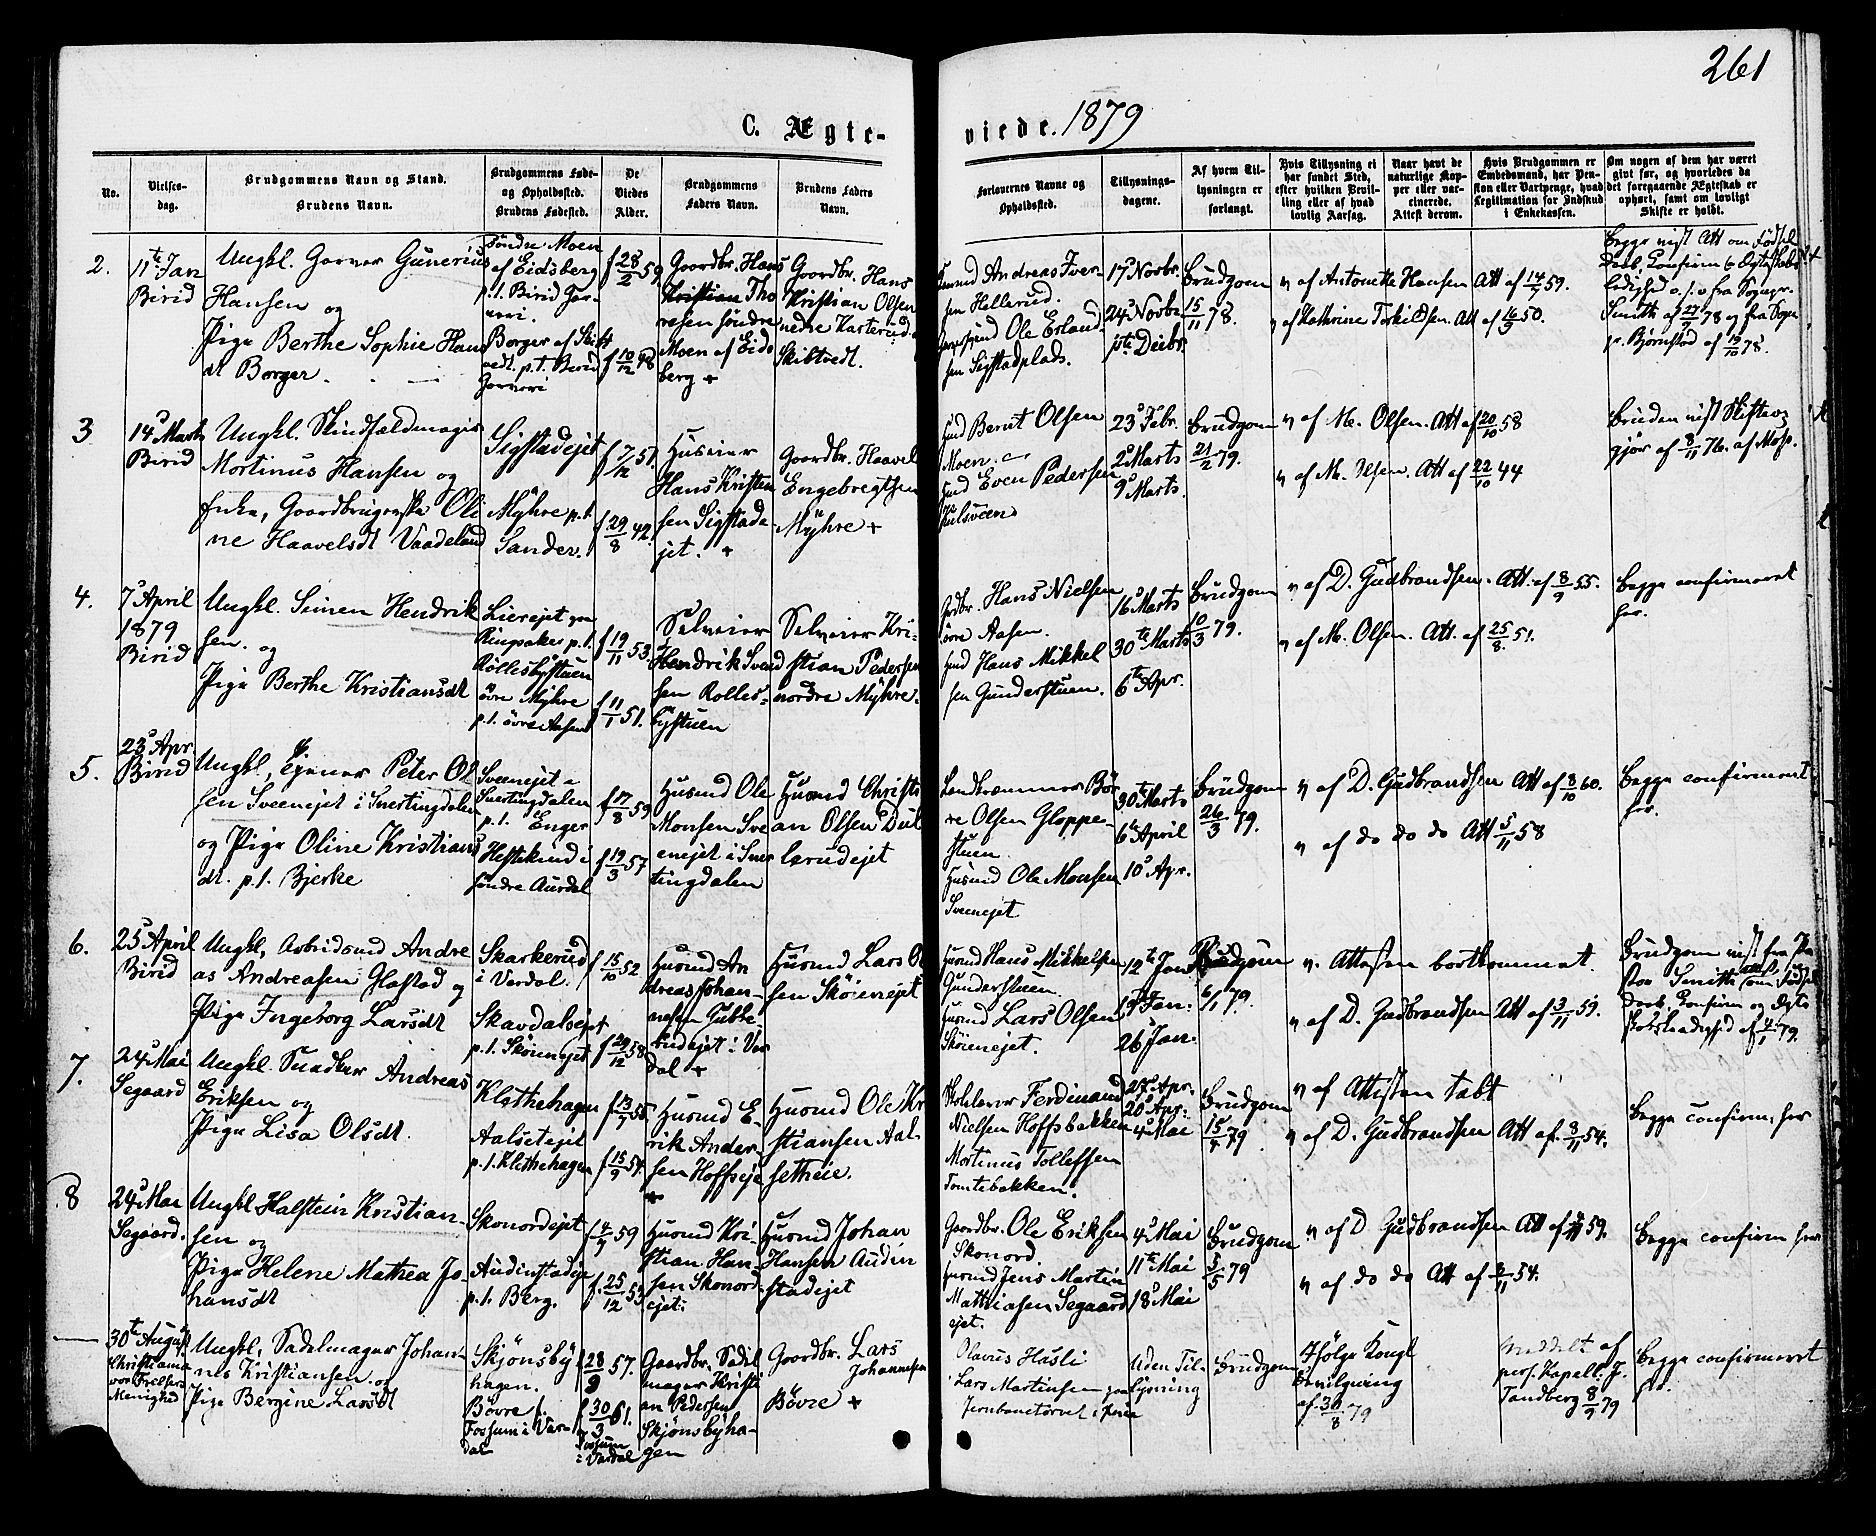 261
C. Ægte-
viede. 1879
No.
Vielses-
dag.
Brudgommens Navn og Stand.
Brudens Navn.
Brudgommens Føde-
og Opholdssted.
Brudens Fødested.
De
Viedes
Alder.
Brudgommens
Faders Navn.
Brudens Faders
Navn.
Forlovernes Navne og
Opholdssted.
Tillysnings-
dagene.
Af hvem Til-
lysningen er
forlangt.
Hvis Tillysning ei
har fundet Sted,
efter hvilken Bevil-
ling eller af hvad
lovlig Aarsag.
Naar havt de
naturlige Kop-
per eller vac-
cinerede.
Attest derom.
Hvis Brudgommen er
Embedsmand, har Pen-
sion eller Vartpenge, hvad
Legitimation for Indskud
i Enkekassen.
Om nogen af dem har været
givt før, og hvorledes da
det foregaaende Ægteskab er
ophørt, samt om lovligt
Skifte er holdt.
2.
11te Jan
Birid
Ungkl. Gunerius
Hansen og
Pige Berthe Sophie Hans
dt Borger.
Søndre Moen
af Eidsberg
p.t. Birid
Borger af Skibt
vedt. p.t. Birid
f 28/2 59
f 10/12 48
Gaardbr. Hans
Kristian Tho
resen søndre
Moen af Eids
berg +
Gaardbr. Hans
Kristian Olsen
nedre Kasterud
Skibtvedt.
Husmd Andreas Iver-
sen Hellerud.
Ole Erland
sen Sigstadplads.
17de Novbr.
24de Novbr.
1ste Decbr.
Brudgom
15/11 78.
v af Antonette Hansen Att af 14/7 59.
v af Kathrine Torkildsen. Att af 16/3 50.
Begge vist Att om Fødsel
Daab, Confirm & Ægteskabs
ledighed
Smith af 27/7 78 og fra Sogn
p. Bjørnstad af 19/10 78.
3
14de Marts
Birid
Ungkl. Skindfældmager
Mortinus Hansen og
Enke, Gaardbrugerske Oli
ne Haavelsdt Vaadeland
Sigstadejet
Myhre p.t.
Sander.
f 7/12 51.
f 29/8 42.
Husmd
Hans Kristen
sen Sigstade-
jet. +
Gaardbr. Haavel
Engebregtsen
Myhre +
Husmd Bernt Olsen
Moen.
Husmd Even Pedersen
23de Febr.
2den Marts
9de Marts.
Brudgom
21/2 79.
v af M. Olsen. Att af 20/10 58
v af M. Olsen. Att af 22/10 44
Bruden vist Skifteop
gjør af 8/11 76.
4.
7de April
1879
Birid
Ungkl. Simen Hendrik
sen. og
Pige Berthe Kristiansdt
Lierejet
Ringsaker p.t.
Røllesbystuen
øvre Myhre
p.t. øvre Aasen
f 19/11 53.
f 11/1 51.
Selveier
Hendrik Svend
sen Rolles-
bystuen
Selveier Kri-
stian Pedersen
nordre Myhre.
Gaardbr. Hans Nielsen
øvre Aasen.
Husmd Hans Mikkel
sen Gunderstuen.
16de Marts
30te Marts
6te Apr.
Brudgom
10/3 79.
v af D. Gudbrandsen. Att. af 8/9 55.
v af M. Olsen. Att. af 25/8. 51.
Begge confirmeret
her.
5.
23de Apr.
Birid
Ungkl, Ejener Peter Ol
sen Sveenejet i Snertingdalen
og Pige Oline Kristians
dt. p.t. Bjerke
Sveenejet
Snertingdalen
p.t. Enger
Heltekind i
søndre Aurdal
f 17/8 59
f 19/3 57
Husmd Ole
Monsen Sve
enejet i Sner
tingdalen
Husmd Christi
an Olsen Dul
lerudejet
Landkræmmer Bør
re Olsen Gloppe-
stuen.
Husmd Ole Monsen
Sveenejet
30te Marts
6te April
10de Apr.
Brudgom
26/3 79.
v af D. Gudbrandsen Att af 8/10 60.
v af do do do Att 5/11 58
Begge confirmeret
her.
6.
25de April
Birid
Ungkl, Arbeidsmd Andre
as Andreasen Glæstad og
Pige Ingeborg Larsdt
Skarkerud
i Vardal.
Skavdalsejet
p.t. Skøienejet
f 15/10 52.
f 29/12 58.
Husmd An
dreas Johan-
nesen Gubbe-
rudejet i Var
dal +
Husmd Lars Ol
sen Skøienejet
Husmd Hans Mikkelsen
Gunderstuen.
Husmd Lars Olsen
Skøienejet.
12te Jan
19de Jan.
26de Jan.
Brudgom
6/1 79.
v. Attesten bortkommet.
v af D. Gudbrandsen Att af 3/11 59.
Brudgom vist fra Pa
stor Smith Att om Fødsel
Daab Confirm og Ægte
skabsledighed af 2/1 79.
7.
24de Mai
Segaard
Ungkl. Sundkur Andreas
Eriksen og
Pige Lisa Olsdt.
Klæthehagen
Aalsetejet
p.t. Klæthehagen
f 13/7 55
f 15/9 54.
Husmd E-
rik Ander-
sen Hoffseje
+
Husmd Ole Kr
stiansen Aal-
setheie.
Ferdinand
Nielsen Hoffsbakken
Mortinus Tollefsen
Tomtebakken.
20de Apr.
27de Apr.
4de Mai
Brudgom
15/4 79
v af Attesten tabt
v af D. Gudbrandsen Att af. 8/11 54.
Begge confirm, her
8
24de Mai
Segaard.
Ungkl Halstein Kristian-
sen og
Pige Helene Mathea Jo-
hansdt
Skonordejet
Audinstadeje
p.t. Berg.
f 4/7 59
f. 25/12 53
Husmd Kri-
stian Han-
sen Skonord-
ejet.
Husmd Johan
Hansen Audin
stadejet
Gaardbr. Ole Eriksen
Skonord.
Husmd Jens Martin
Mathiasen Segaard
ejet.
4de Mai
11te Mai
18de Mai
Brudgom
3/5 79
v af D. Gudbrandsen Att af 59.
v af do do Att af 54.
Begge confirm her
30te August
Christiania
vor Frelsers
Menighed
Ungkl, Sadelmager Johan-
nes Kristiansen og
Pige Bergine Larsdt
Skjønsby
hagen.
Bøvre
Fossum i Var-
dal
28/9 57.
30/3 61.
Fossum
i Vardal
Gaardbr. Sadel
mager Kristi
an Pedersen
Skjønsbyha-
gen
Gaardbr. Lars
Johannesen
Bøvre +
Olavus Hasli
Lars Martinsen
Jernbanetorvet
Uden Til-
lysning
Brudgom
Ifølge Kongl
Bevilgning
af 30/8 79
Meddelt af
pers. Kapell. J.
Sandberg 8/9 79
Begge confirmeret
her.